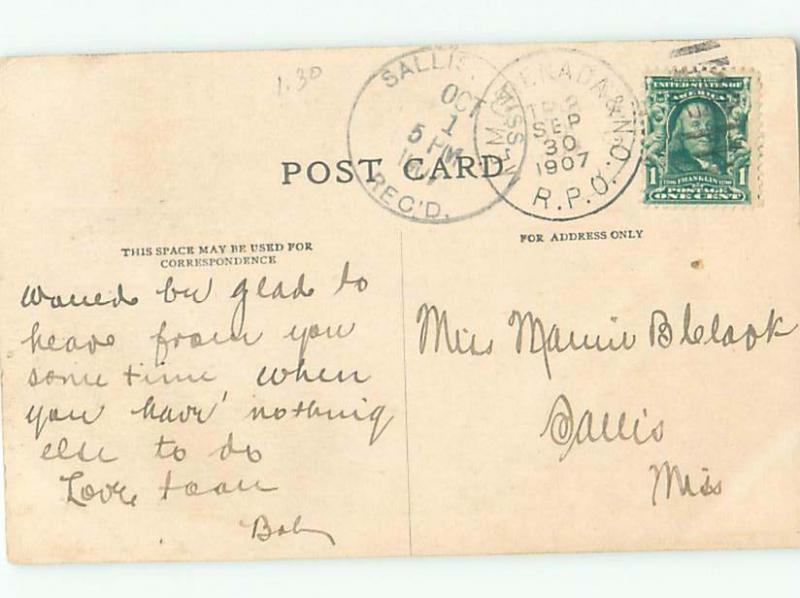 1.30
SALLIS, MISS.
OCT
1
5 PM
REC'D.
GRENADA & N.O.
TR 2
SEP
30
1907
R.P.O.
UNITED STATES OF AMERICA
1 FRANKLIN 1
POSTAGE
ONE CENT
POST CARD
THIS SPACE MAY BE USED FOR
CORRESPONDENCE
FOR ADDRESS ONLY
would be glad to
hear from you
some time when
you have nothing
else to do
Love
Miss Mamie B
Sallis
Miss